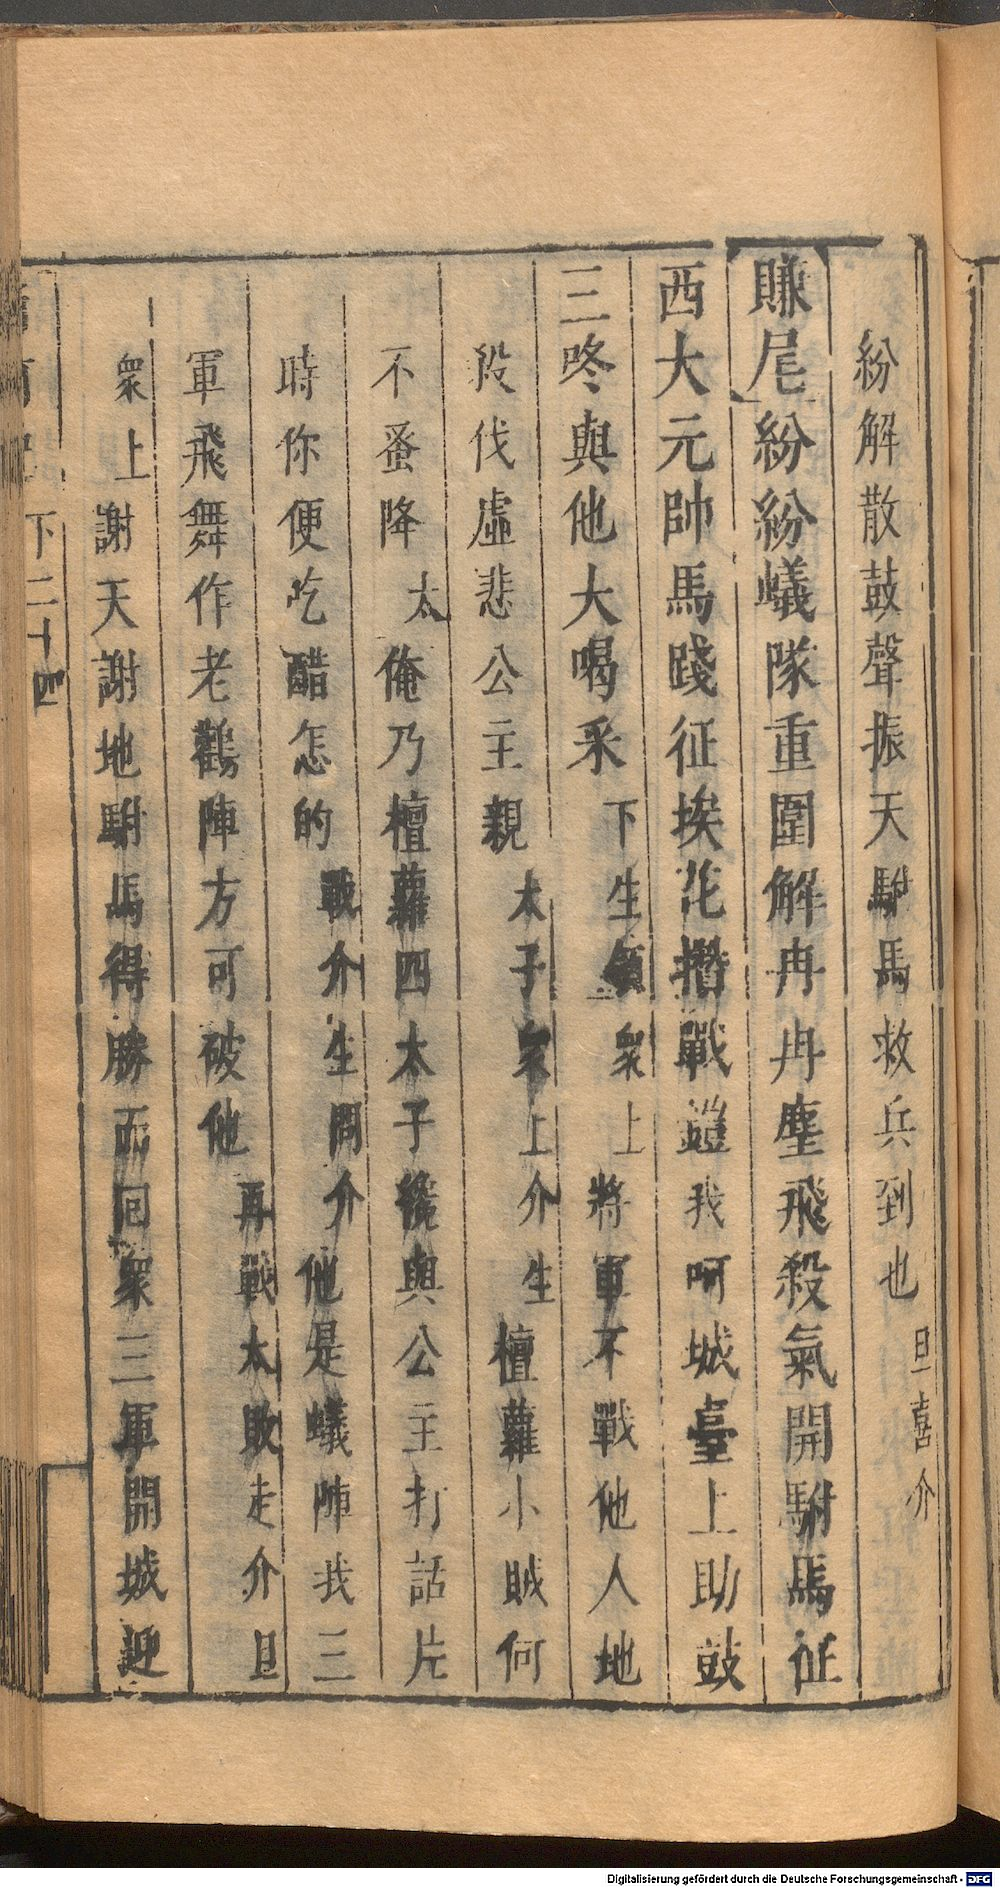 紛解散鼓聲振天駙馬救兵到也旦喜介
賺尾紛紛蟻隊重圍解冉冉塵飛殺氣開駙馬征
西大元帥馬踐征挨花攢戰鎧我呵城臺上助鼓
三咚與他大喝采下生領衆上將軍不戰他人地
殺伐虛悲公主親太子衆上介生檀蘿小賊何
不蚤降太俺乃檀蘿四太子纔與公主打話片
時你便吃醋怎的戰介生問介他是蟻陣我三
軍飛舞作老鸛陣方可破他再戰太敗走介旦
衆上謝天謝地駙馬得勝而回衆三軍開城迎
下二十四
Digitalisierung gefördert durch die Deutsche Forschungsgemeinschaft - DFG